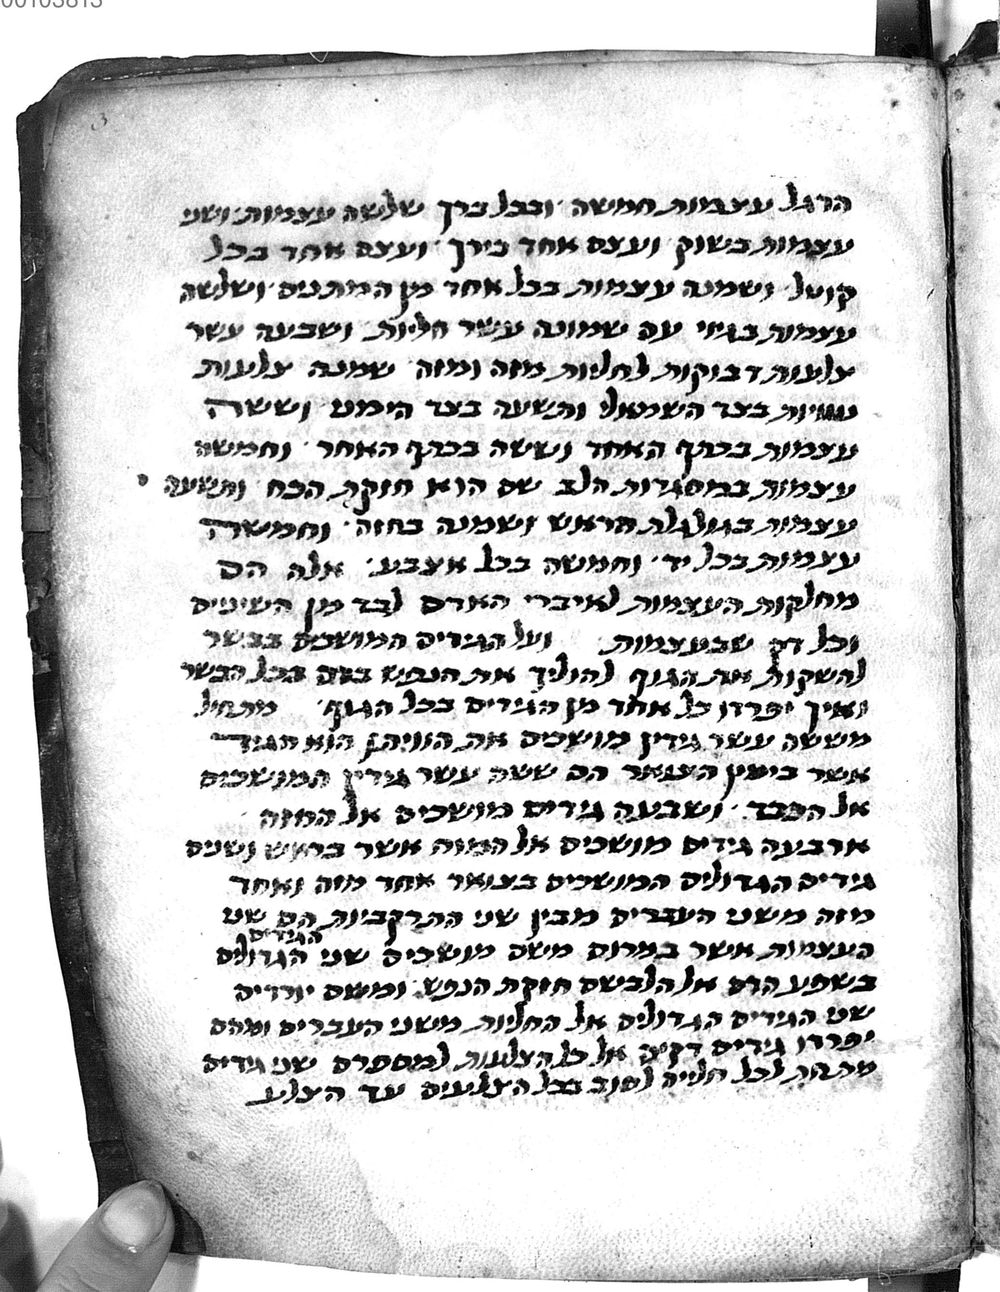 00103813
הרגל עצמות חמשה ובכל ברך שלשה עצמות ושני
עצמות בשוק ועצם אחד בירך ועצם אחד בכל
קוטל ושמנה עצמות בכל אחד מן המתנים ושלשה
עצמות בגוי עם שמונה עשר חליות ושבעה עשר
צלעות דבוקות לחליות מזה ומזה שמנה צלעות
בצד השמאלי ותשעה בצד הימני וששה
עצמות בכתף האחד וששה בכתף האחר וחמשה
עצמות במסגרות הלב שם הוא חזקת הכח ותשעה
עצמות בגולגלת הראש ושמנה בחזה וחמשה
עצמות בכל יד וחמשה בכל אצבע אלה הם
מחלקות העצמות לאיברי האדם לבד מן השינים
וכל דק שבעצמות ועל הגידים המושכים בבשר
להשקות את הגוף להוליך את הנפש בדם בכל הבשר
ואיך יפרדו כל אחד מן הגידים בכל הגוף מתחיל
מששה עשר גידין מושכים את הוורידין הוא הגיד
אשר בימין הצואר הם ששה עשר גידין המושכים
אל הכבד ושבעה גידים מושכים אל המוח
ארבעה גידים מושכים אל המוח אשר בראש ושנים
גידים הגדולים המושכים בצואר אחד מזה ואחד
מזה משני העברים מבין שני התרקביות הם שני
העצמות אשר במרום משם מושכים שני הגידים הגדולים
בשפע הדם אל הלב ששם חזקת הנפש ומשם יורדים
שני הגידים הגדולים אל החליות משני העברים ומהם
יפרדו גידים דקים אל כל הצלעות למספרם שני גידים
מתחת לכל חליה לסוב בכל הצלעים עד הצלע